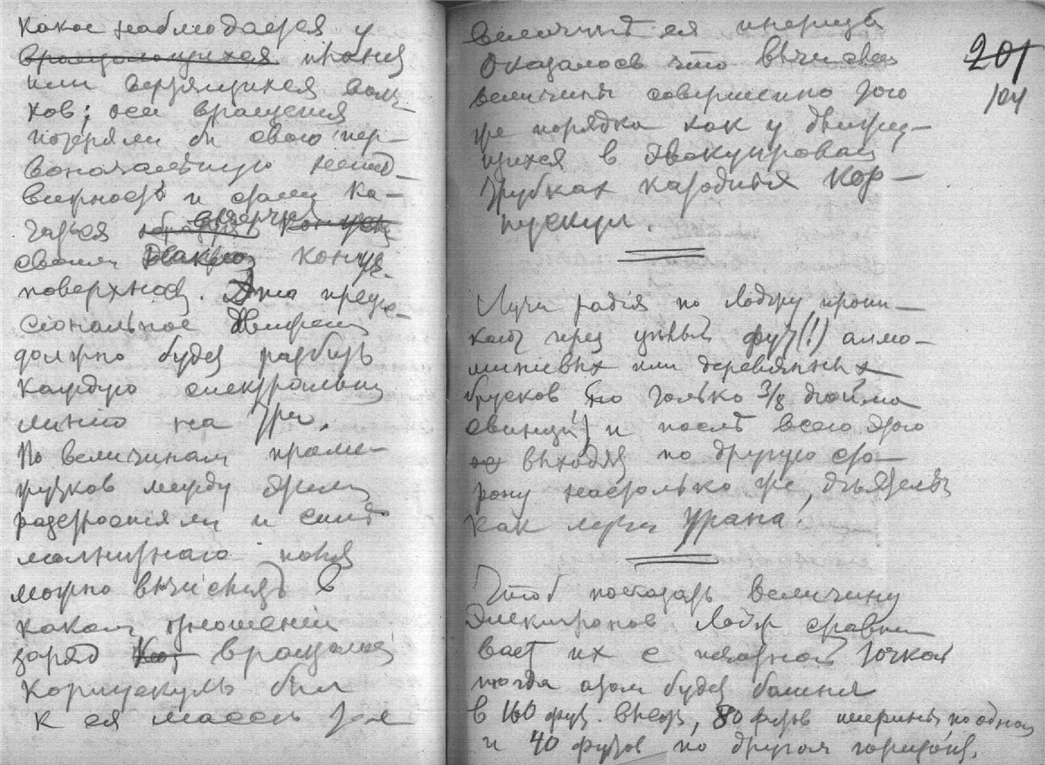 какое наблюдается у
вращающихся
или вертящихся волч-
ков; оси вращения
потеряли бы свою пер-
воначальную
верность и стали ка-
чаться
своими конус.
поверхност. Это прецес-
сиональное движение
должно будет разбить
каждую спектральную
линию на три.
По величинам проме-
жутков между этими
и силе
магнитнаго поля
можно вычислить в
каком отношении
заряд вращающей
корпускулы был
к ея массе
величине ея инерции
Оказалось что
величины совершенно того
же порядка как у движу-
щихся в эвакуирован
трубках катодных кор-
пускул.
201
104
Лучи радія по Лоджу прони-
кают через целый фут (!) аллю-
миніевых или деревянных
брусков только 3/8 дюйма
свинца!) и после всего этого
выходят по другую сто-
рону настолько же
как лучи урана!
Чтоб показать величину
электронов Лодж сравни
вает их с печатной точкой
тогда атом будет башня
в 160 фут. высот, 80 футов ширины по одной
и 40 футов по другой